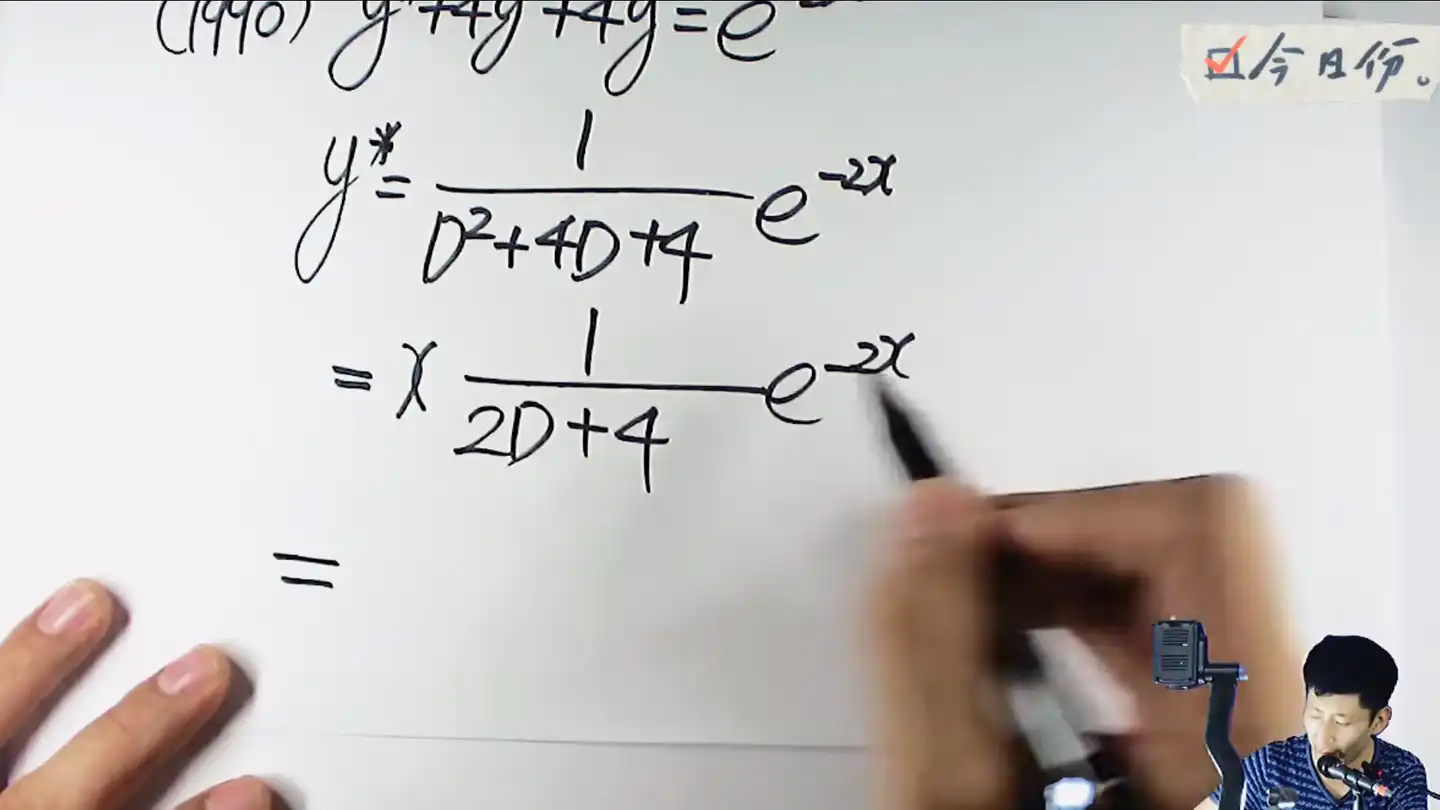 (1990) y"+4y'+4y=e
今日份。
y*= 1/(D²+4D+4) e^{-2x}
= x 1/(2D+4) e^{-2x}
=